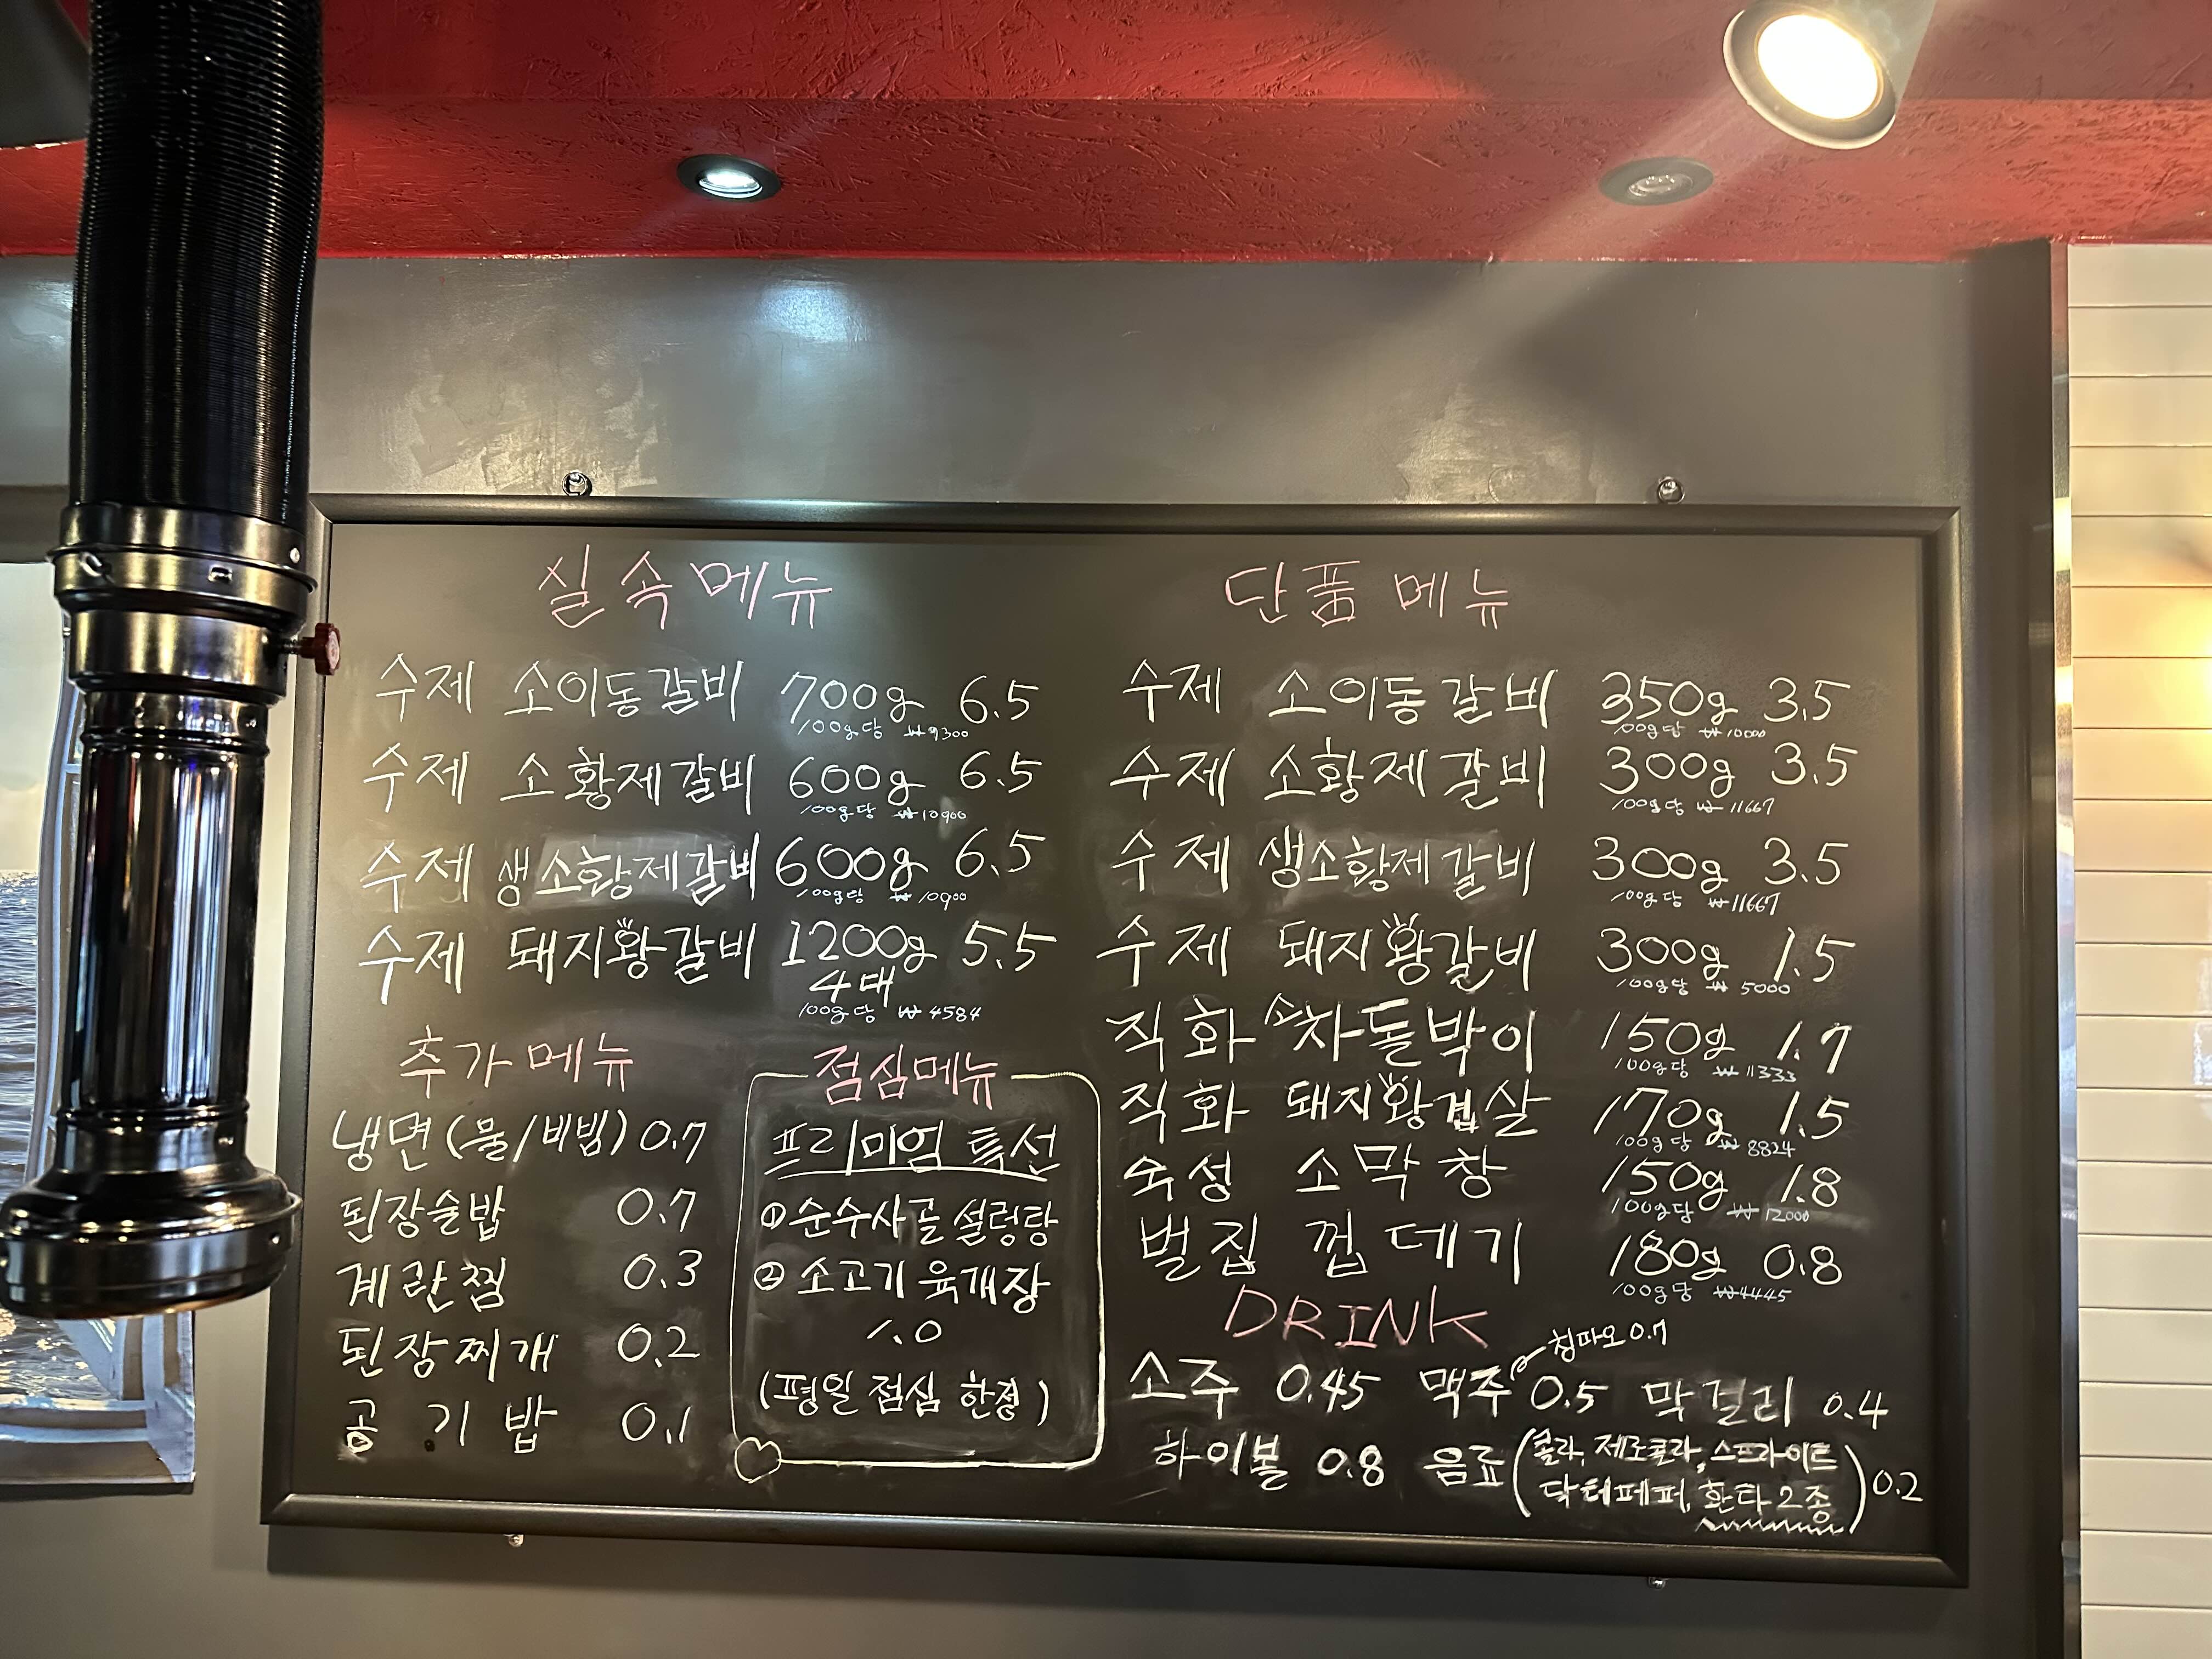 실속메뉴
수제 소이동갈비 700g 6.5
100g당 ₩9300
수제 소황제갈비 600g 6.5
100g당 ₩10900
수제 생소황제갈비 600g 6.5
100g당 ₩10900
수제 돼지황갈비 1200g 5.5
4대
100g당 ₩4584
추가메뉴
냉면(물/비빔) 0.7
된장술밥 0.7
계란찜 0.3
된장찌개 0.2
공기밥 0.1
점심메뉴
프리미엄 특선
① 순수사골 설렁탕
② 소고기 육개장
1.0
(평일 점심 한정)
단품메뉴
수제 소이동갈비 350g 3.5
100g당 ₩10000
수제 소황제갈비 300g 3.5
100g당 ₩11667
수제 생소황제갈비 300g 3.5
100g당 ₩11667
수제 돼지황갈비 300g 1.5
100g당 ₩5000
직화 소차돌박이 150g 1.7
100g당 ₩11333
직화 돼지황겹살 170g 1.5
100g당 ₩8824
숙성 소막창 150g 1.8
100g당 ₩12000
벌집 껍데기 180g 0.8
100g당 ₩4445
DRINK
칭따오 0.7
소주 0.45 맥주 0.5 막걸리 0.4
하이볼 0.8 음료 (콜라, 제로콜라, 스프라이트
닥터페퍼, 환타2종) 0.2